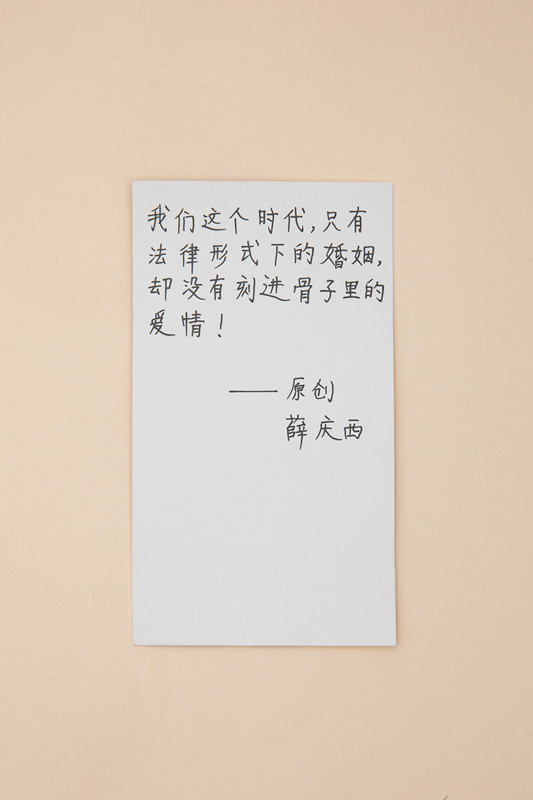 我们这个时代,只有
法律形式下的婚姻,
却没有刻进骨子里的
爱情!
——原创
薛庆西